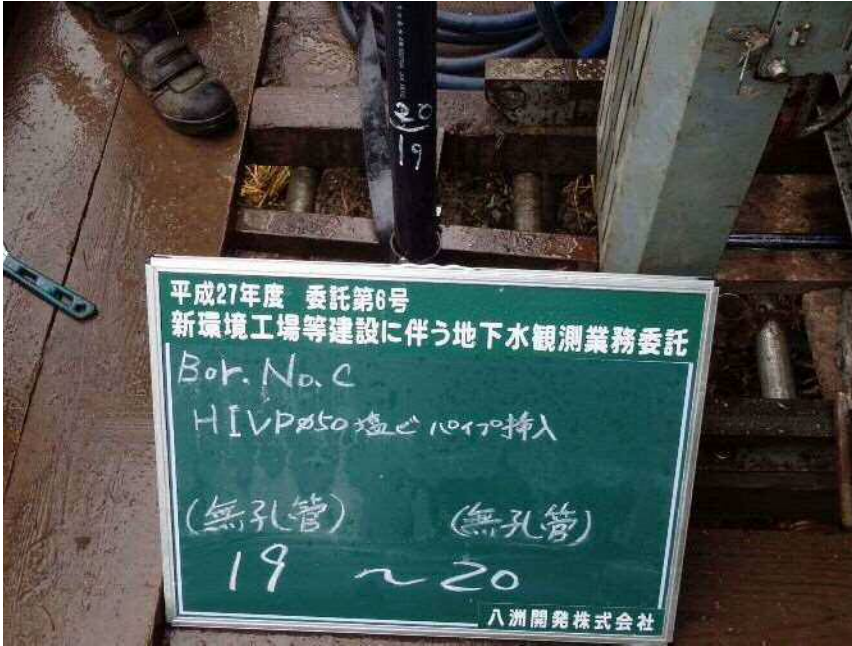 20
19
平成27年度 委託第6号
新環境工場等建設に伴う地下水観測業務委託
Bor. No. C
HIVPφ50塩ビパイプ挿入
(無孔管) (無孔管)
19 ~ 20
八洲開発株式会社